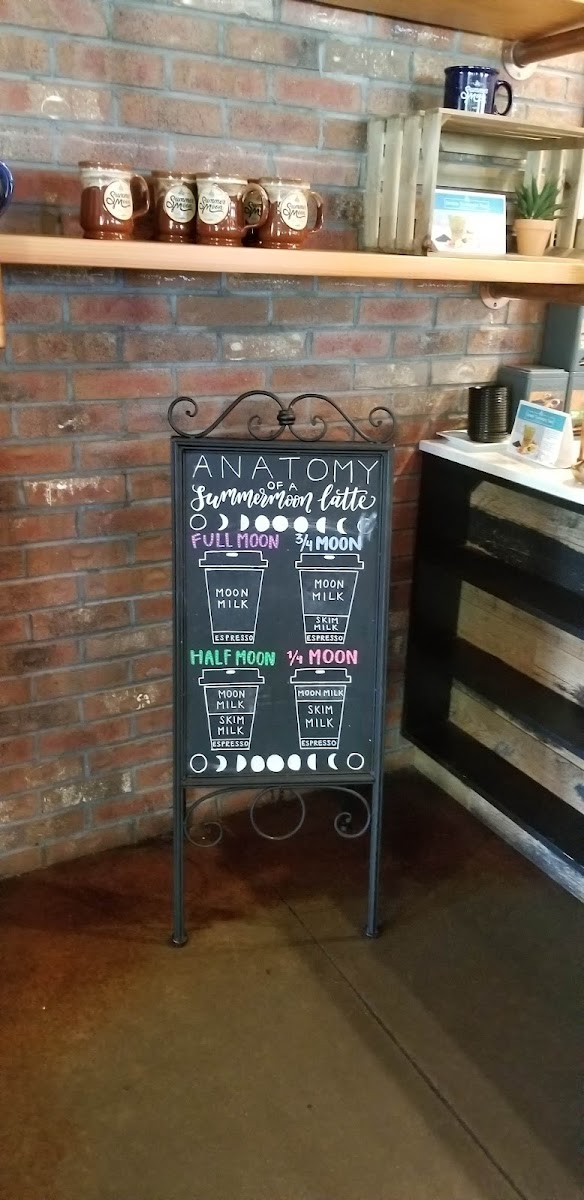 Summer Moon
Summer Moon
Summer Moon
Summer Moon
Summer Moon
ANATOMY
OF A
Summermoon latte
FULL MOON
3/4 MOON
MOON
MILK
ESPRESSO
MOON
MILK
SKIM
MILK
ESPRESSO
HALF MOON
1/4 MOON
MOON
MILK
SKIM
MILK
ESPRESSO
MOON MILK
SKIM
MILK
ESPRESSO